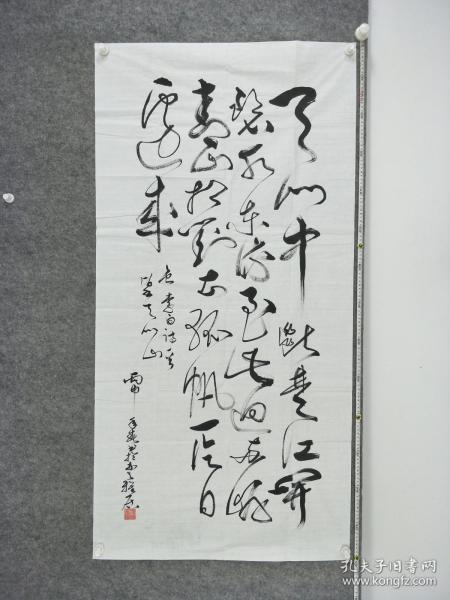 天门中断楚江开
碧水东流至此迴两岸
青山相对出孤帆一片日
边来
李白诗
望天门山
丙申
孔夫子旧书网
www.kongfz.com